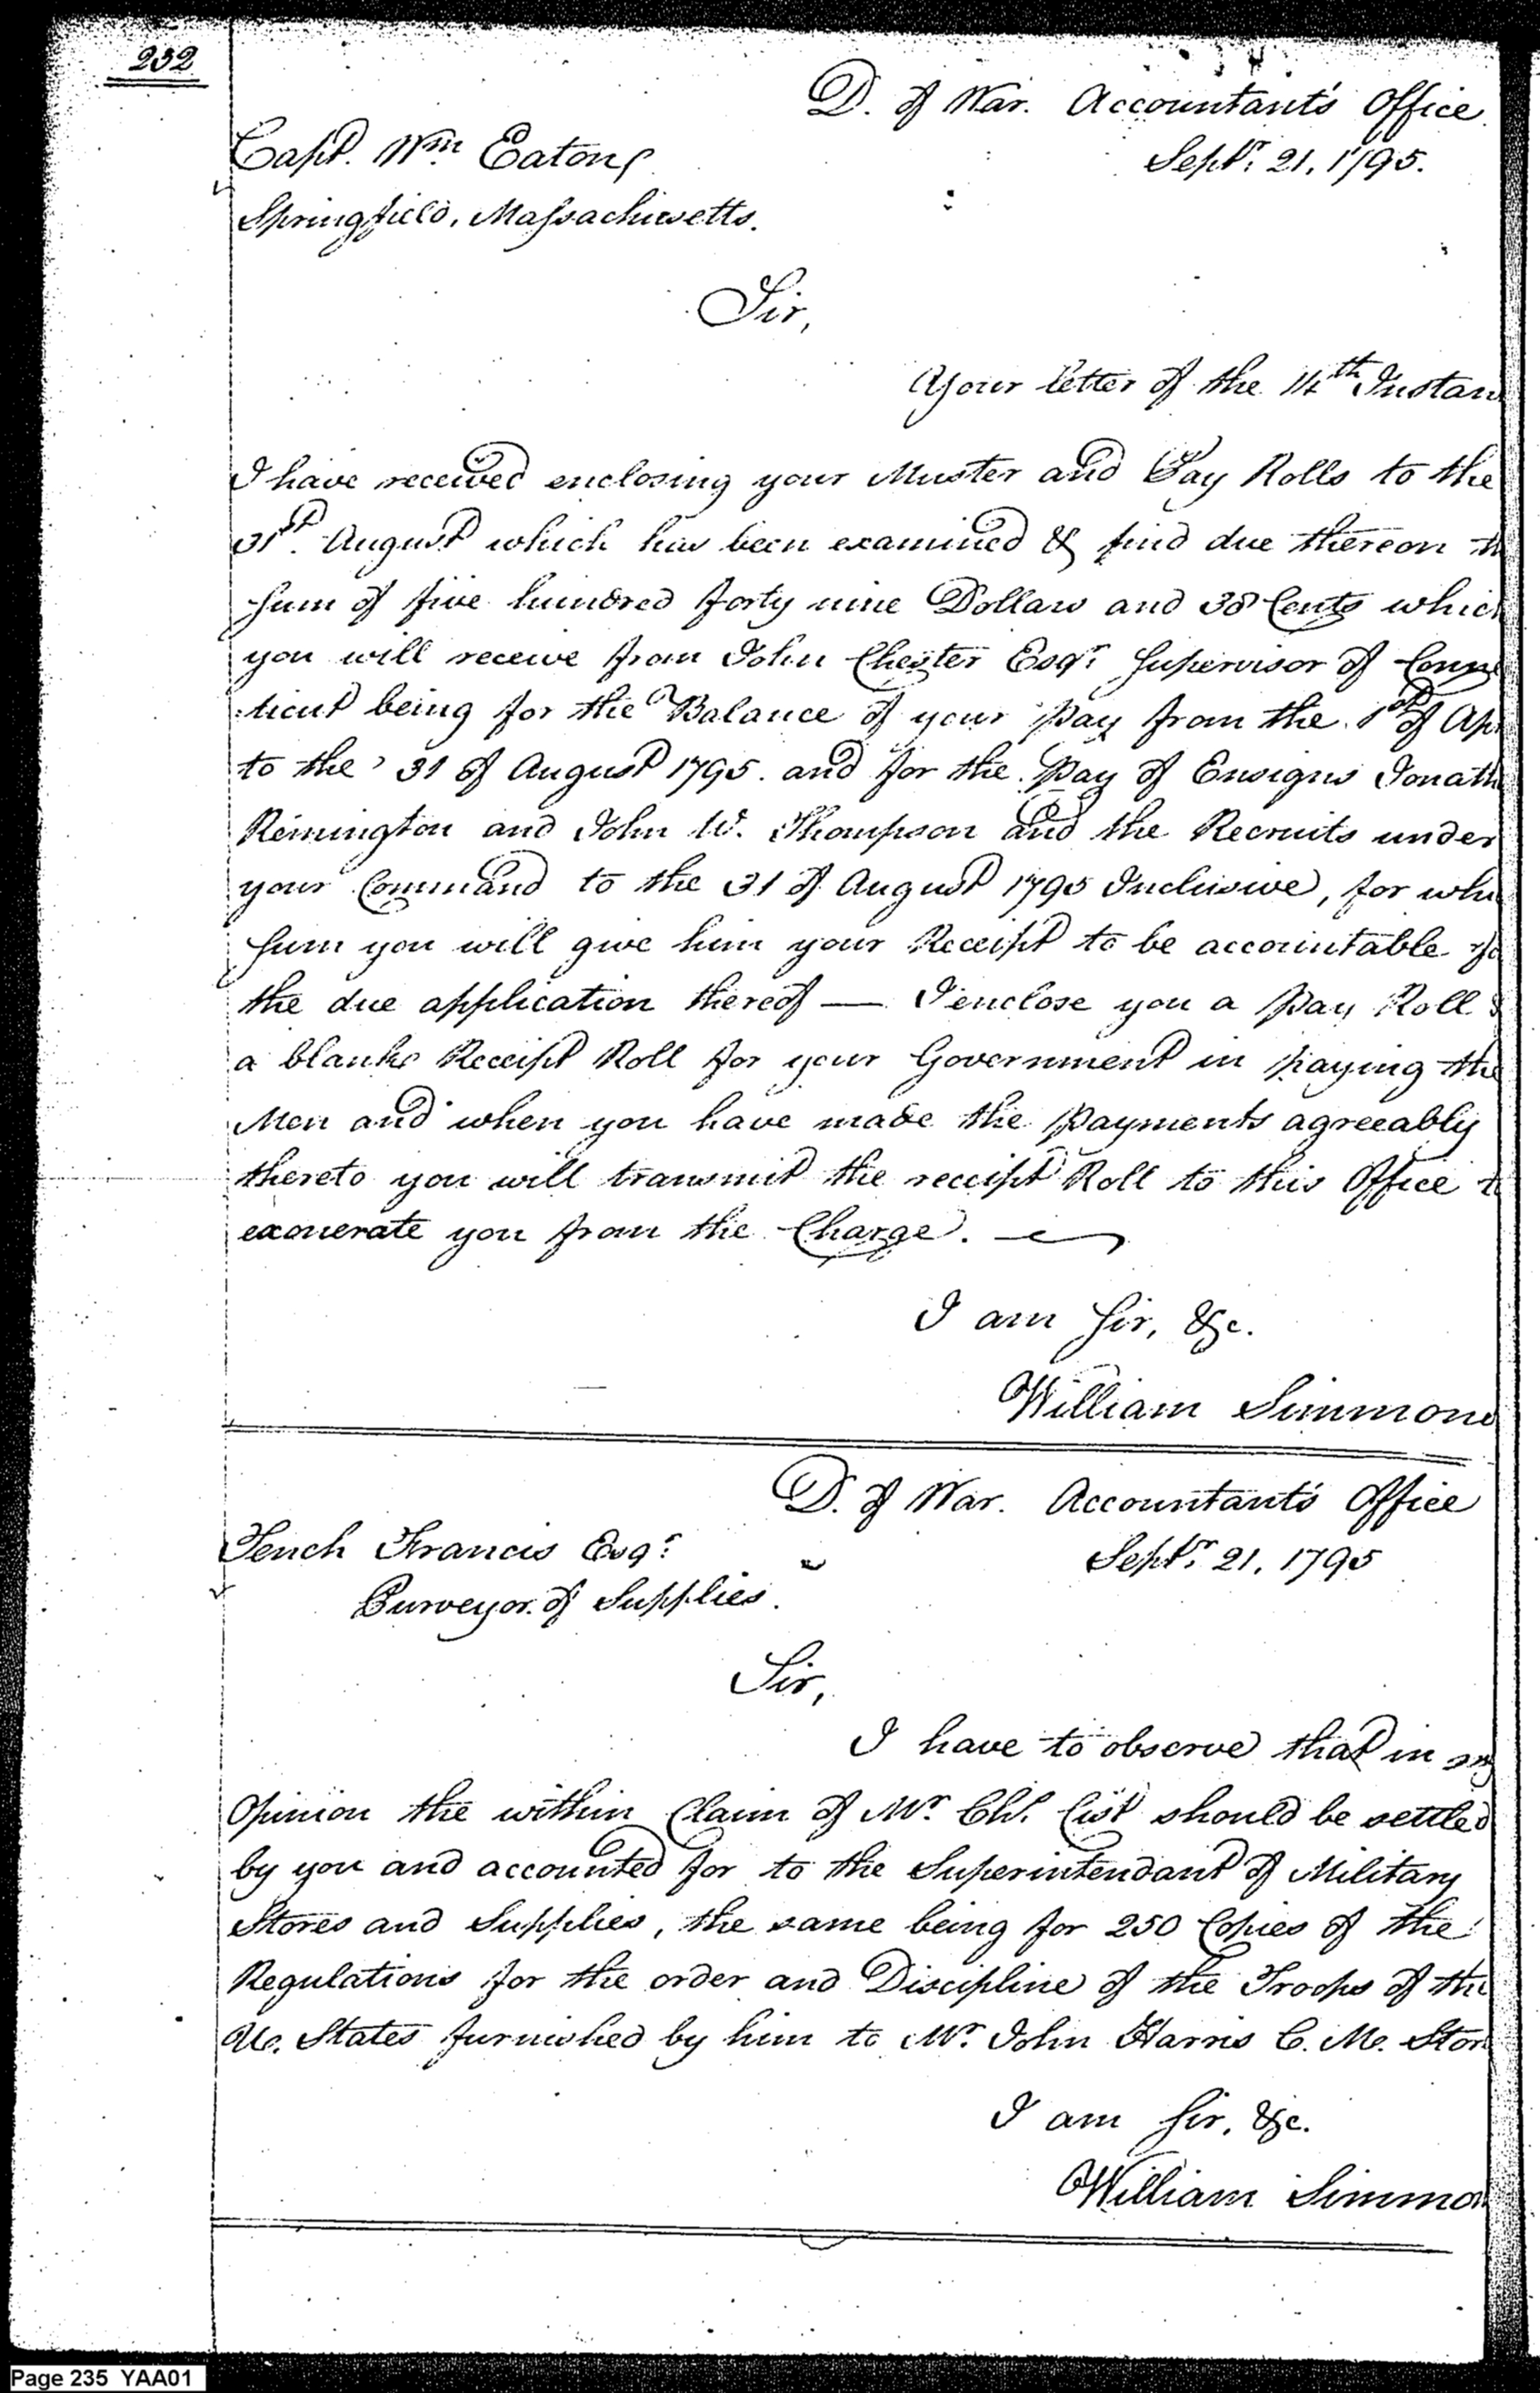 232
D. of War. Accountant's Office
Capt. Wm Eaton
Septr. 21, 1795.
Springfield, Massachusetts.
Sir,
Your letter of the 14th Instan
I have received enclosing your Muster and Pay Rolls to the
31st. August which has been examined & find due thereon th
sum of five hundred forty nine Dollars and 38 Cents which
you will receive from John Chester Esqr. Supervisor of Conne
:ticut being for the Balance of your pay from the 1st of Ap
to the 31 of August 1795. and for the pay of Ensigns Jonath
Remington and John W. Thompson and the Recruits under
your Command to the 31 of August 1795 Inclusive, for whi
sum you will give him your Receipt to be accountable fo
the due application thereof — I enclose you a Pay Roll &
a blank Receipt Roll for your Government in paying the
Men and when you have made the payments agreeably
thereto you will transmit the receipt Roll to this Office to
exonerate you from the Charge.
I am Sir, &c.
William Simmons
D. of War. Accountant's Office
Tench Francis Esqr.
Septr. 21, 1795
Purveyor of Supplies.
Sir,
I have to observe that in my
Opinion the within Claim of Mr. Chs. Cist should be settled
by you and accounted for to the Superintendant of Military
Stores and Supplies, the same being for 250 Copies of the
Regulations for the order and Discipline of the Troops of the
U. States furnished by him to Mr. John Harris C. M. Stor
I am Sir, &c.
William Simmon
Page 235 YAA01